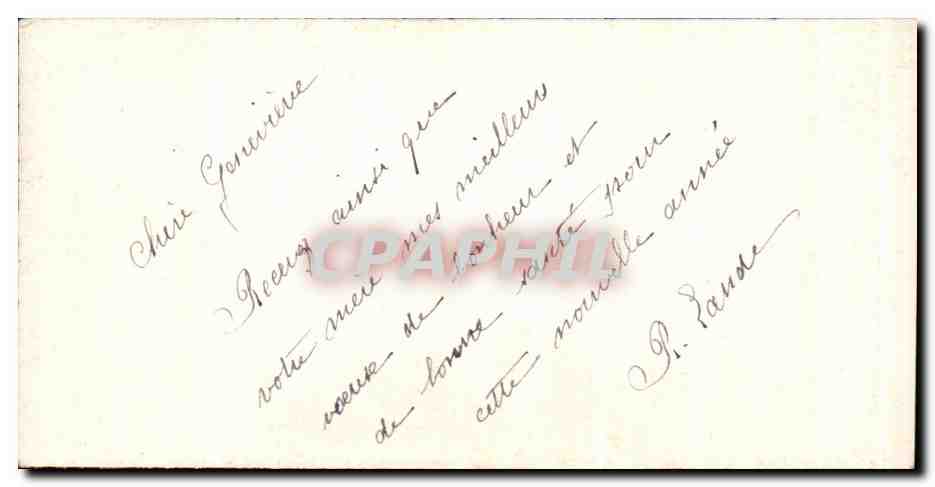 Chère Geneviève
Recevez ainsi que
votre mère mes meilleurs
voeux de bonheur et
de bonne santé pour
cette nouvelle année
CPAPHIL